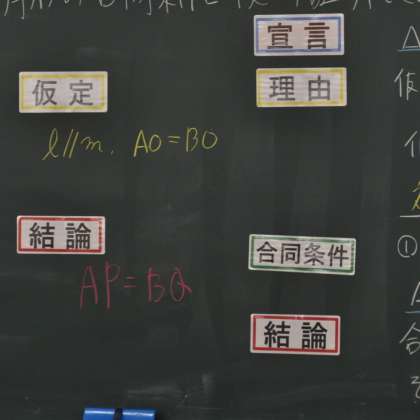 宣言
仮定
理由
l//m, AO=BO
結論
合同条件
AP=BQ
結論
①